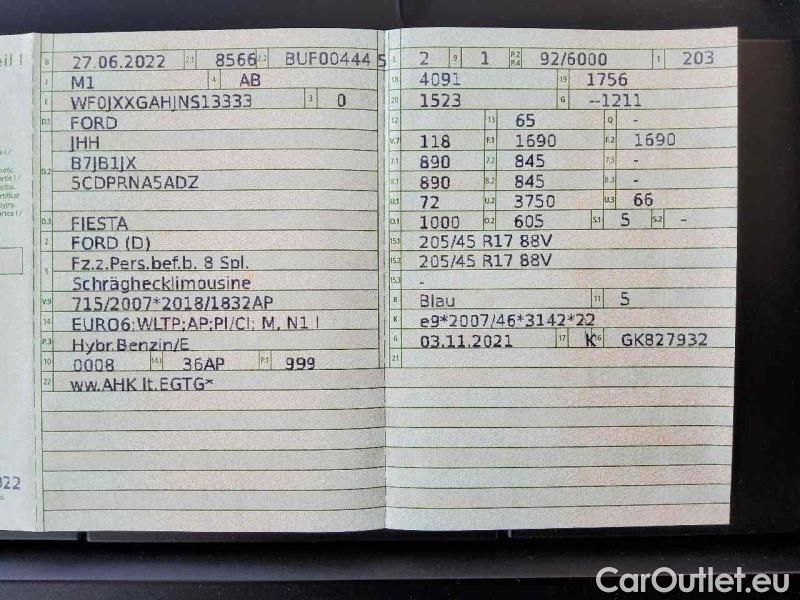 eil I
B 27.06.2022 2.1 8566 2.2 BUF00444 5
J M1 4 AB
E WF0JXXGAHJNS13333 3 0
D.1 FORD
JHH
D.2 B7JB1JX
5CDPRNA5ADZ
D.3 FIESTA
2 FORD (D)
5 Fz.z.Pers.bef.b. 8 Spl.
Schräghecklimousine
V.9 715/2007*2018/1832AP
14 EURO6;WLTP;AP;PI/CI; M, N1 I
P.3 Hybr.Benzin/E
10 0008 14.1 36AP P.1 999
22 ww.AHK lt.EGTG*
L 2 9 1 P.2 P.4 92/6000 T 203
18 4091 19 1756
20 1523 G --1211
12 13 65 Q -
V.7 118 F.1 1690 F.2 1690
7.1 890 7.2 845 7.3 -
8.1 890 8.2 845 8.3 -
U.1 72 U.2 3750 U.3 66
O.1 1000 O.2 605 S.1 5 S.2 -
15.1 205/45 R17 88V
15.2 205/45 R17 88V
15.3 -
R Blau 11 5
K e9*2007/46*3142*22
6 03.11.2021 17 K 16 GK827932
21
022
CarOutlet.eu